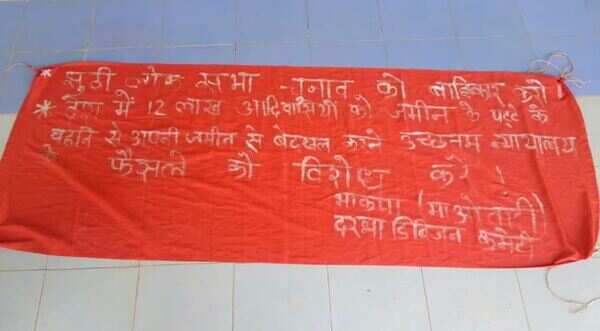 * झुठी लोक सभा चुनाव को बाहिकार करो
* देश में 12 लाख आदिवासीयों को जमीन के पट्टे के
बहाने से अपनी जमीन से बेदखल करने उच्चतम न्यायालय
के फैसले को विरोध करें।
भाकपा (माओवादी)
दरभा डिविजन कमेटी